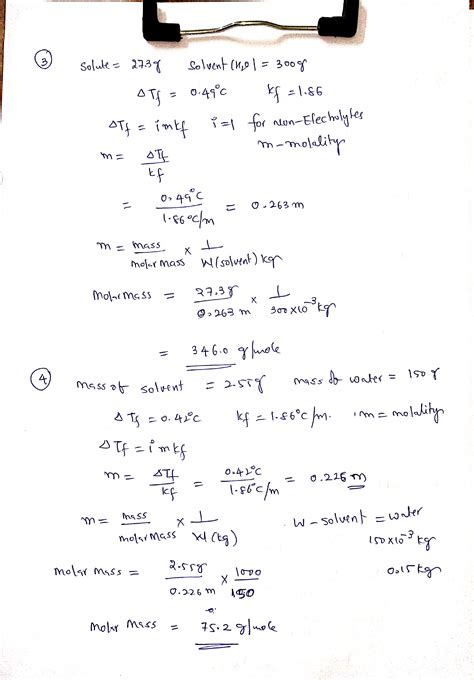 ③ Solute = 27.3g Solvent (H2O) = 300g
ΔTf = 0.49°C Kf = 1.86
ΔTf = i m kf i=1 for non-Electrolytes
m - molality
m = ΔTf / kf
= 0.49°C / 1.86°C/m = 0.263 m
m = mass / molar mass × 1 / W(solvent) kg
Molar mass = 27.3g / 0.263 m × 1 / 300×10⁻³ kg
= 346.0 g/mole
④ mass of solvent = 2.55g mass of water = 150 g
ΔTf = 0.42°C kf = 1.86°C/m. m = molality
ΔTf = i m kf
m = ΔTf / kf = 0.42°C / 1.86°C/m = 0.226 m
m = mass / molar mass × 1 / W (kg) W - solvent = water
150×10⁻³ kg
0.15 kg
Molar mass = 2.55g / 0.226 m × 1000 / 150
Molar mass = 75.2 g/mole